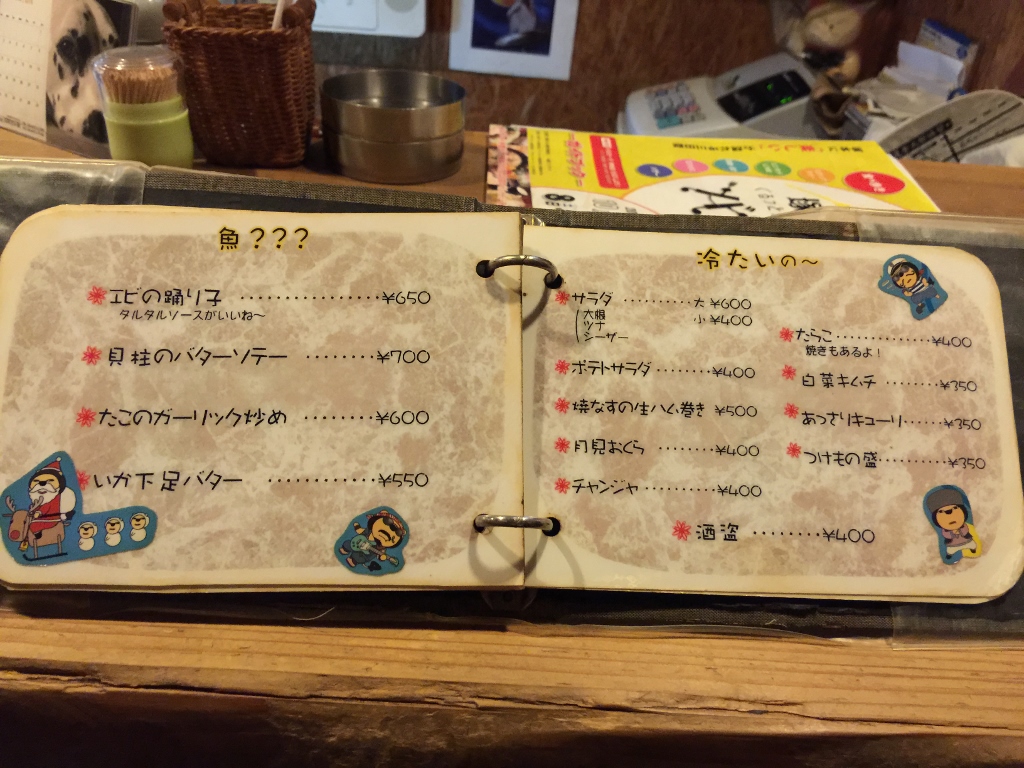 魚???
エビの踊り子 ················ ¥650
タルタルソースがいいね〜
貝柱のバターソテー ········ ¥700
たこのガーリック炒め ········ ¥600
いか下足バター ············ ¥550
冷たいの〜
サラダ ·········· 大 ¥600
大根 小 ¥400
ツナ
シーザー
ポテトサラダ ········ ¥400
焼なすの生ハム巻き ¥500
月見おくら ········ ¥400
チャンジャ ·········· ¥400
たらこ ············· ¥400
焼きもあるよ!
白菜キムチ ········ ¥350
あっさりキューリ ······ ¥350
つけもの盛 ·········· ¥350
酒盗 ········ ¥400